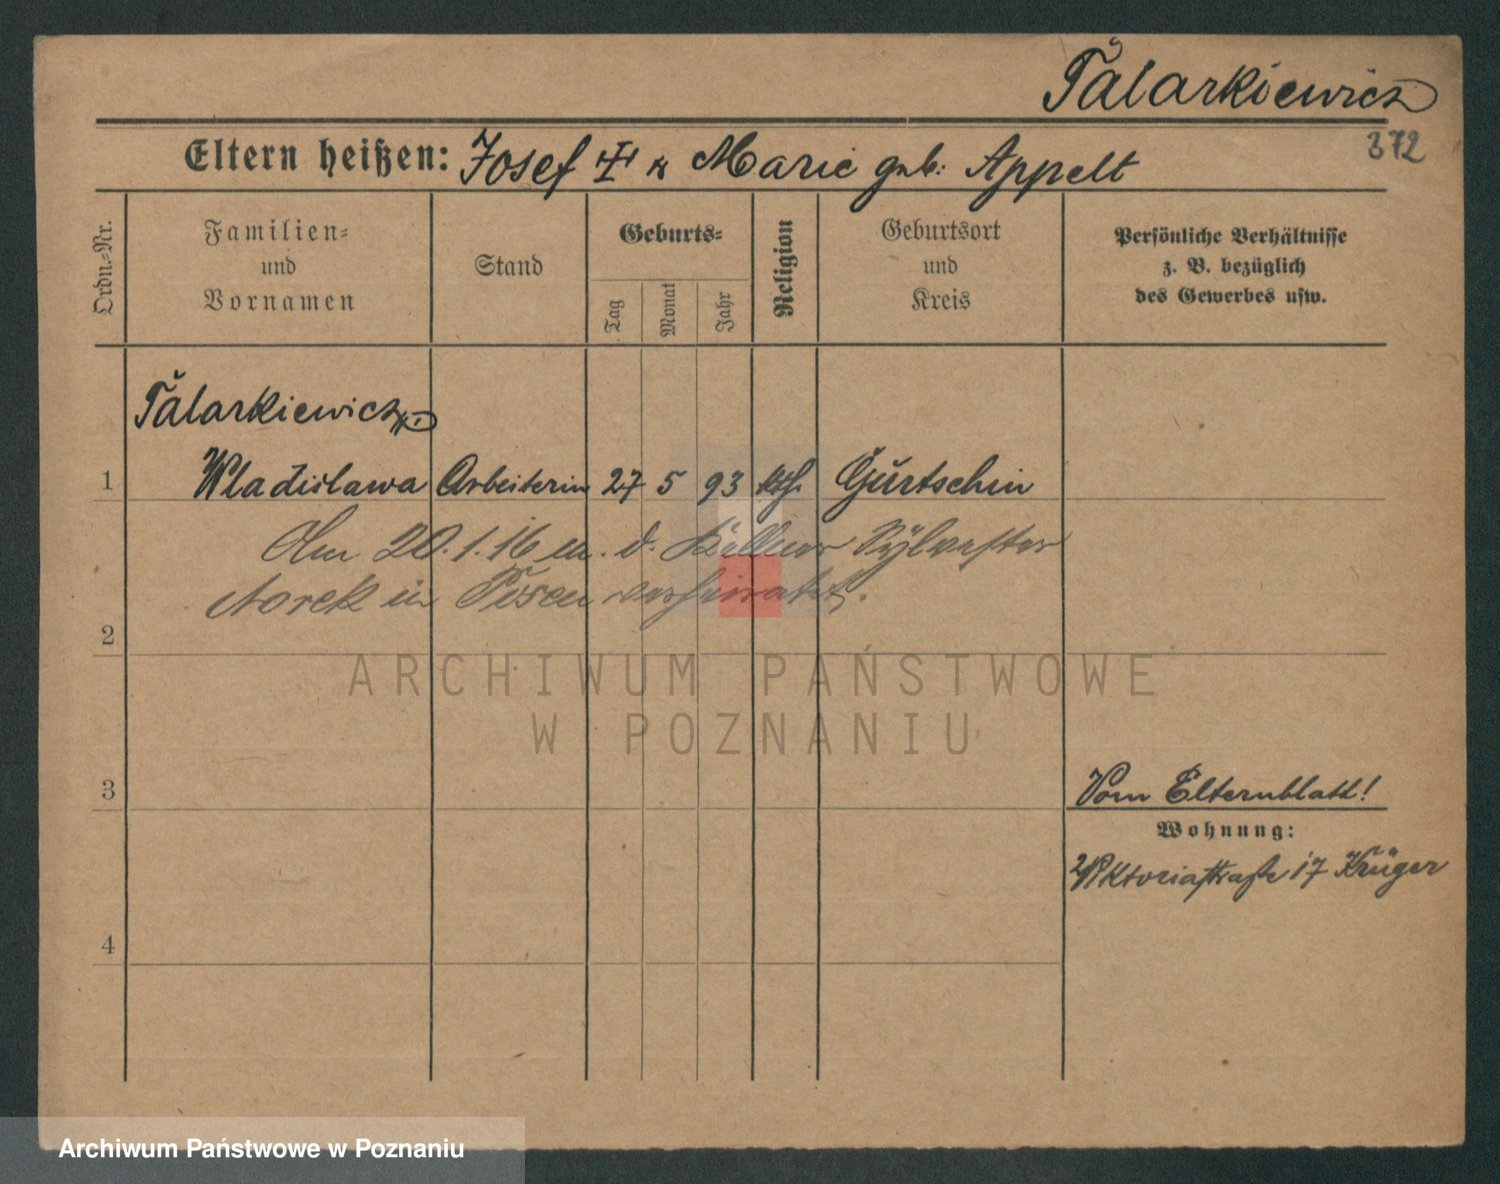 Talarkiewicz
372
Eltern heißen: Josef † u Marie geb: Appelt
Ordn.-Nr.
Familien- und Vornamen
Stand
Geburts-
Tag
Monat
Jahr
Religion
Geburtsort und Kreis
Persönliche Verhältnisse
z. B. bezüglich
des Gewerbes usw.
Talarkiewicz
1 Wladislawa Arbeiterin 27 5 93 kth. Gurtschin
Am 20.1.16 m. d. Kellner Sylvester
in Posen verheiratet.
2
ARCHIWUM PAŃSTWOWE
W POZNANIU
3
Vom Elternblatt!
Wohnung:
Viktoriastraße 17 Krüger
4
Archiwum Państwowe w Poznaniu